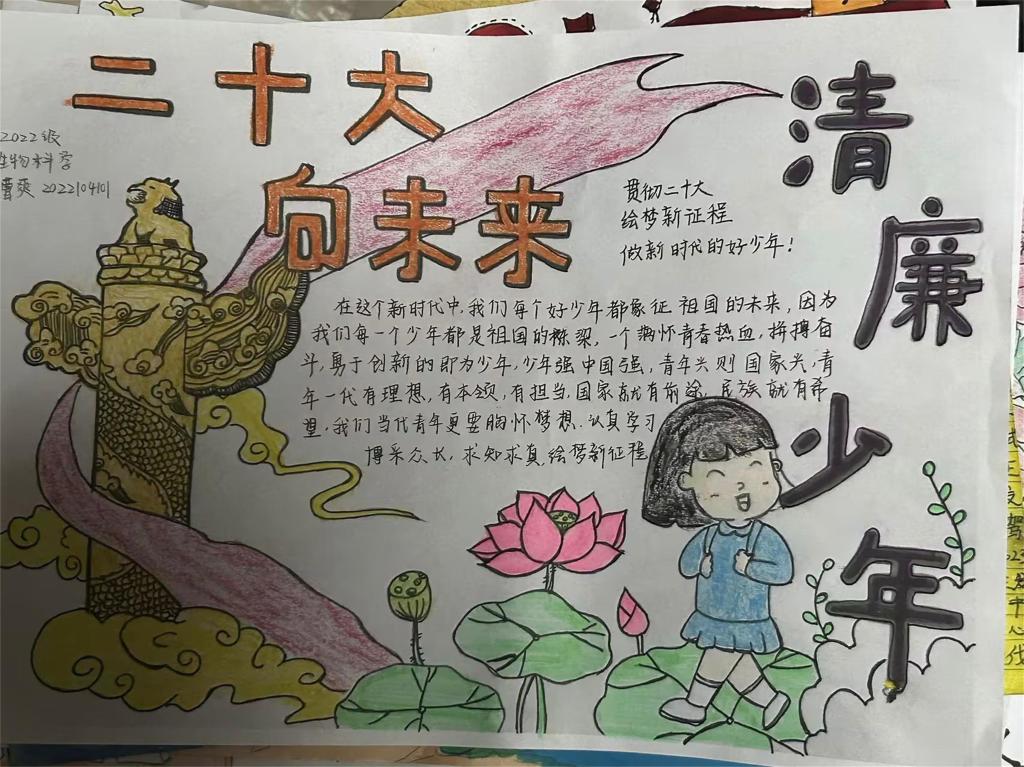 二十大
向未来
清廉少年
2022级
生物科学
曹爽 202210401
贯彻二十大
绘梦新征程
做新时代的好少年！
在这个新时代中,我们每个好少年都象征祖国的未来,因为
我们每一个少年都是祖国的栋梁,一个满怀青春热血,拼搏奋
斗,勇于创新的即为少年,少年强中国强,青年兴则国家兴,青
年一代有理想,有本领,有担当,国家就有前途,民族就有希
望,我们当代青年更要胸怀梦想.认真学习
博采众长,求知求真,绘梦新征程